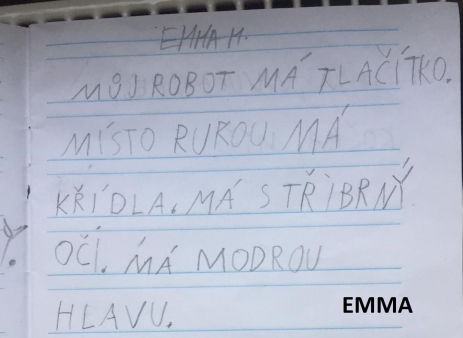 EMMA M.
MŮJ ROBOT MÁ TLAČÍTKO.
MÍSTO RUKOU MÁ
KŘÍDLA. MÁ STŘIBRNÝ
OČÍ. MÁ MODROU
HLAVU.
EMMA